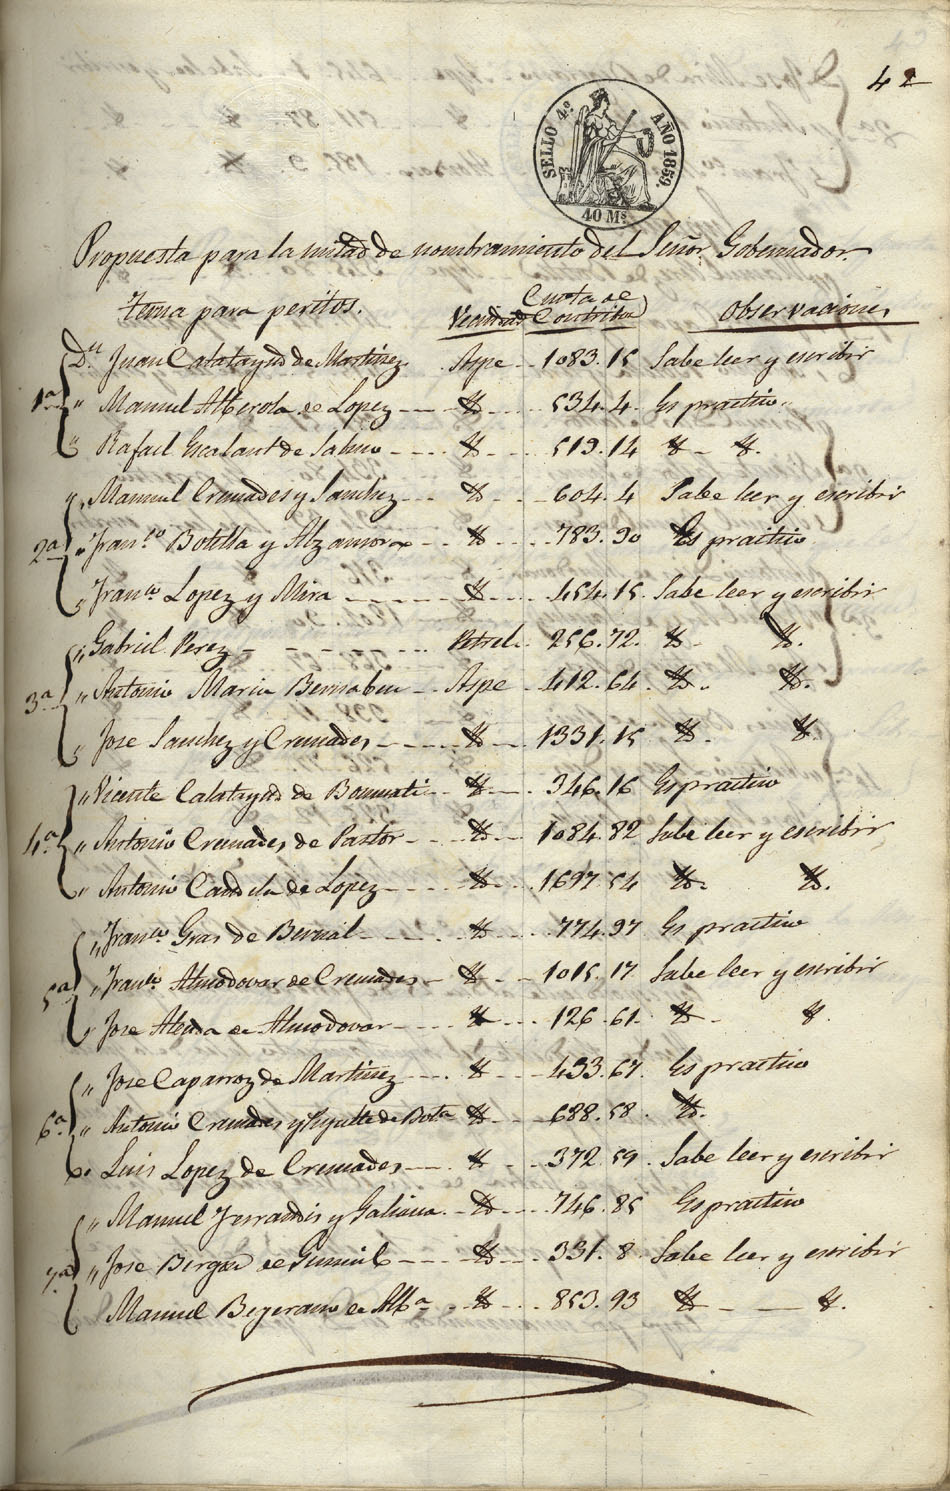 42
SELLO 4º AÑO 1859.
40 Ms
Propuesta para la mitad de nombramiento del Señor Gobernador.
Terna para peritos. Vecindad Cuota de Contribu Observaciones
1ª Dn Juan Calatayud de Martinez Aspe 1083.15 Sabe leer y escribir
" Manuel Alberola de Lopez 534.4. Es practico.
" Rafael Escalant de 519.14
2ª " Manuel Cremades y Sanchez 604.4 Sabe leer y escribir
" Franco Botella y Alzamora 783.90 Es practico
" Franco Lopez y Mira 454.15. Sabe leer y escribir
3ª " Gabriel Perez Petrel 256.72.
" Antonio Maria Bernabeu Aspe 412.64
" Jose Sanchez y Cremades 1331.15
4ª " Vicente Calatayud de Bonmati 346.16 Es practico
" Antonio Cremades de Pastor 1084.82 Sabe leer y escribir
" Antonio Candela de Lopez 1697.54
5ª " Franco Gras de Bernal 774.97 Es practico
" Franco Almodovar de Cremades 1015.17 Sabe leer y escribir
" Jose de Almodovar 126.61
6ª " Jose Caparroz de Martinez 433.67 Es practico
" Antonio Cremades y de Bota 688.58
Luis Lopez de Cremades 372.59 Sabe leer y escribir
7ª " Manuel Ferrandis y Galiana 746.85 Es practico
" Jose de 331.8 Sabe leer y escribir
Manuel de Alba 853.93